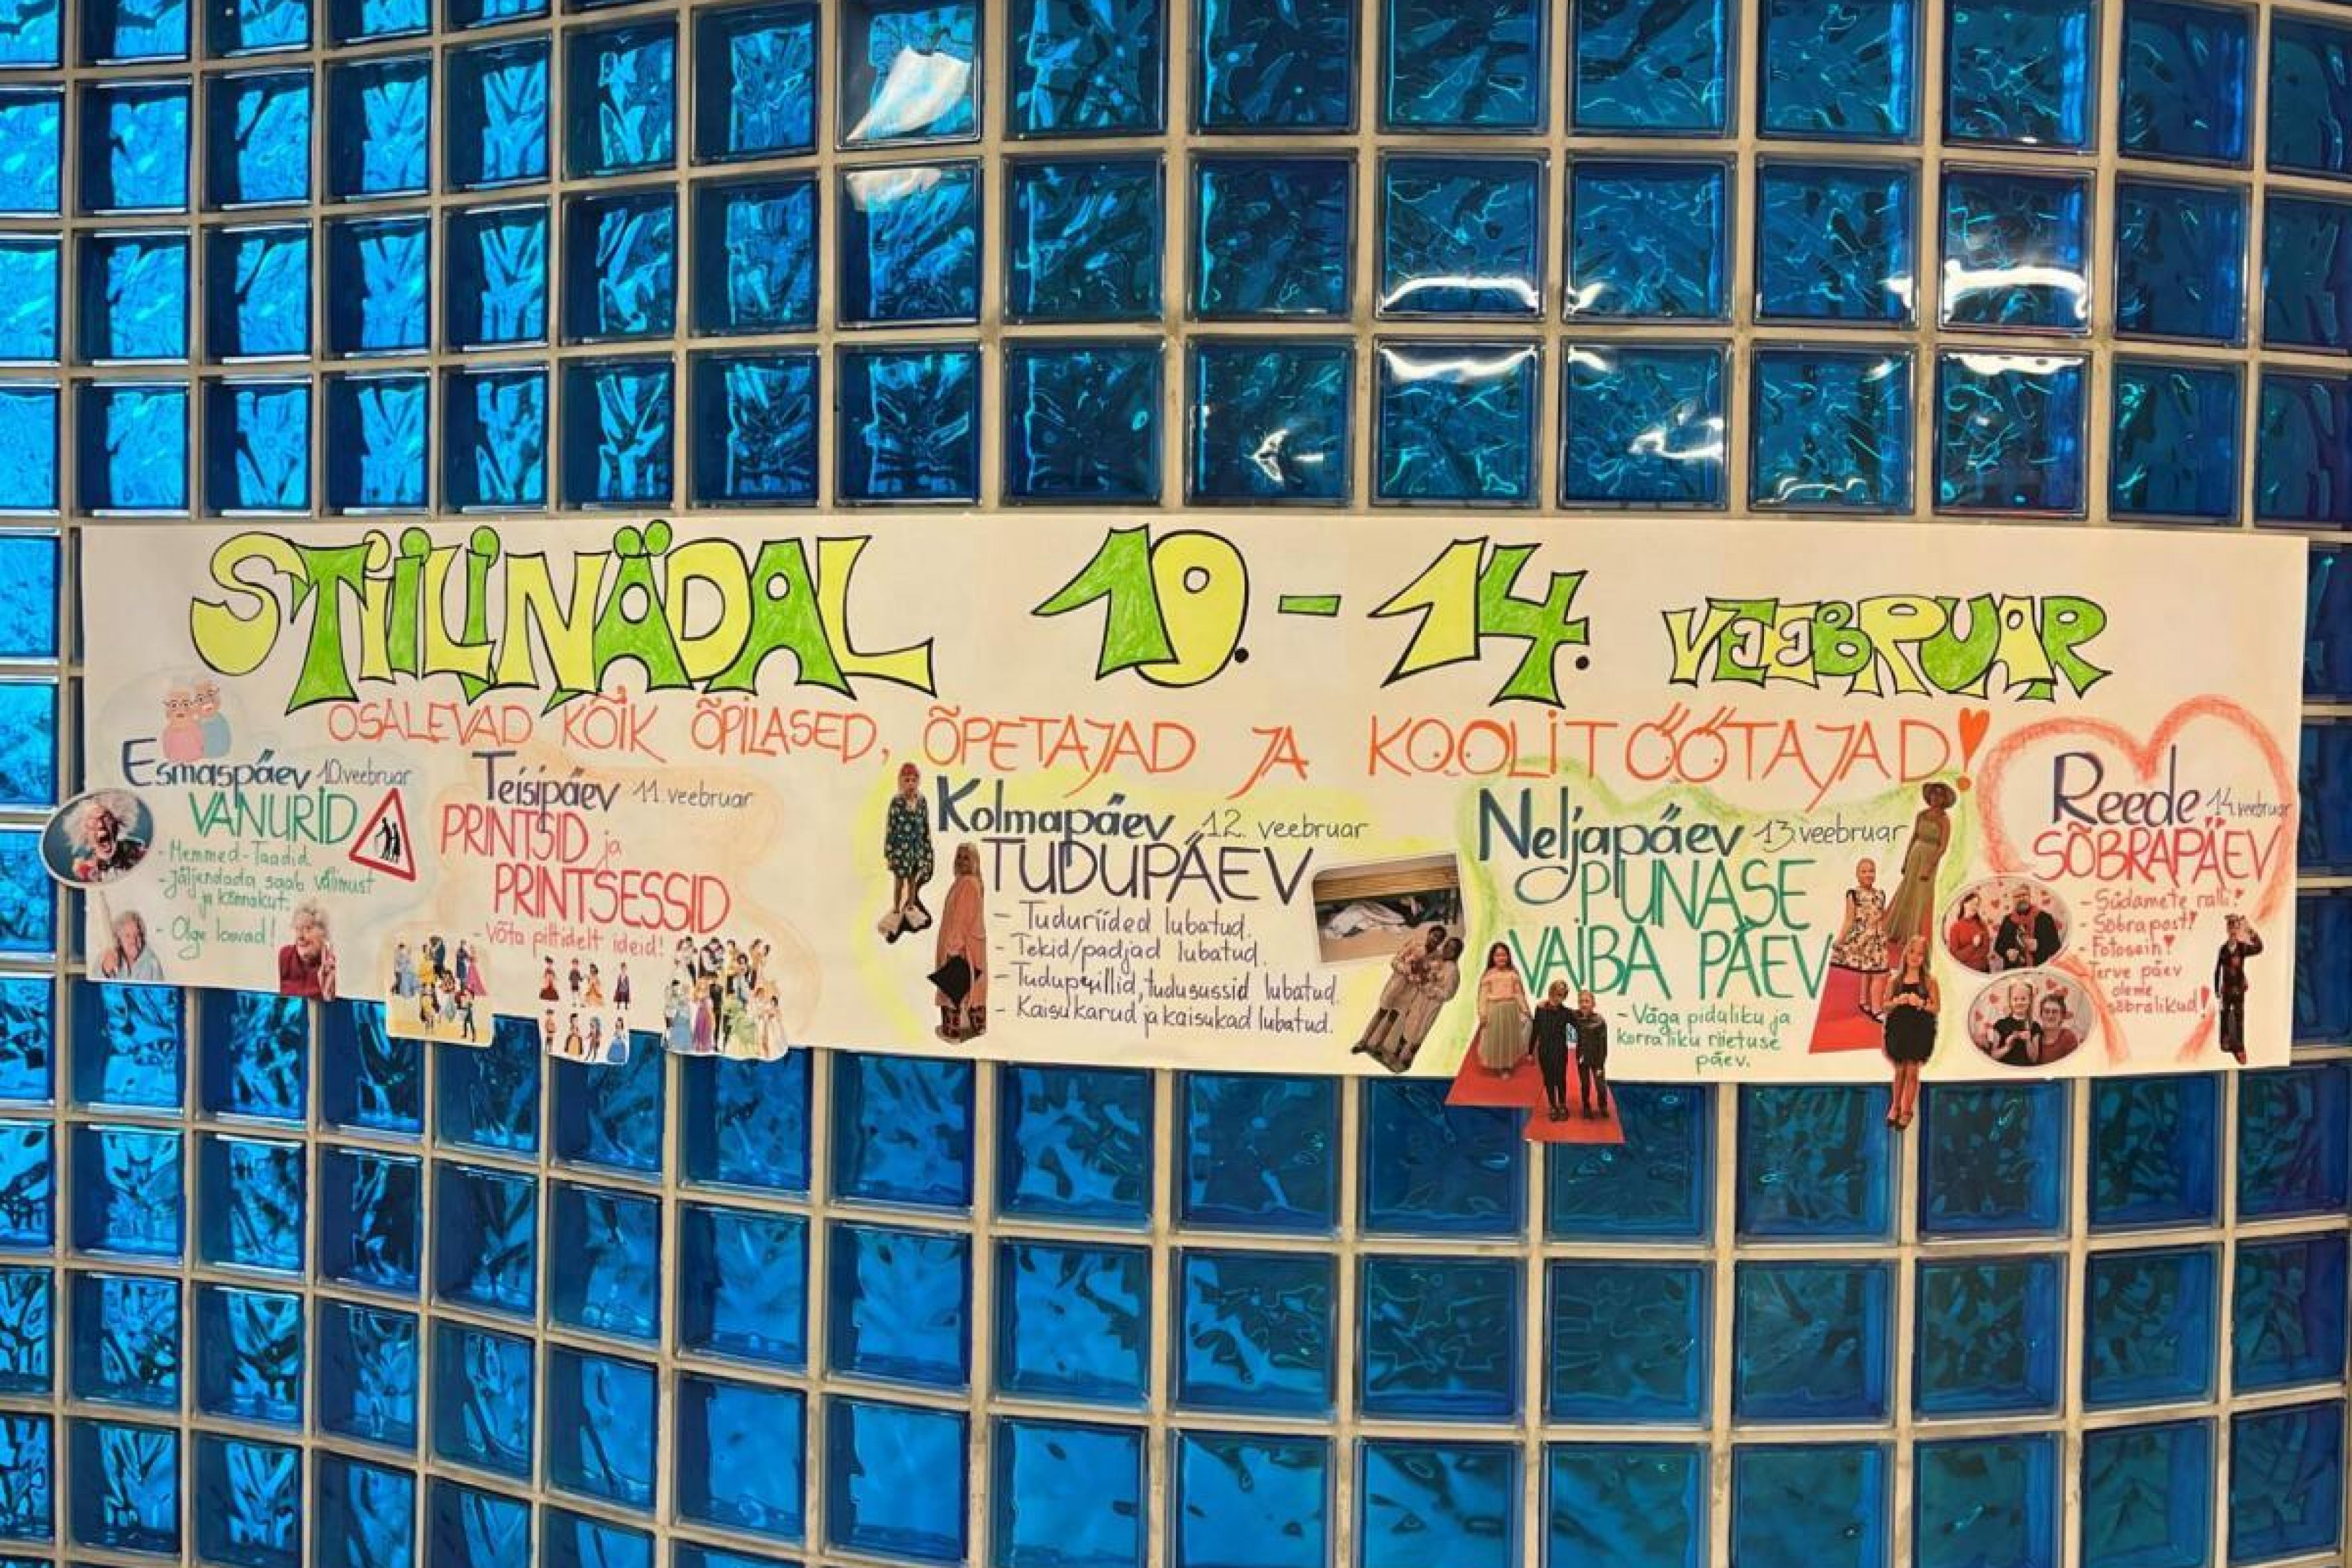 STiiLiNÄDAL 10. - 14. VEEBRUAR
OSALEVAD KÕIK ÕPILASED, ÕPETAJAD JA KOOLITÖÖTAJAD!
Esmaspäev 10.veebruar
VANURID
- Memmed-Taadid.
- Jäljendada saab välimust
ja kõnnakut.
- Olge loovad!
Teisipäev 11.veebruar
PRINTSID ja
PRINTSESSID
- Võta piltidelt ideid!
Kolmapäev 12. veebruar
TUDUPÄEV
- Tuduriided lubatud.
- Tekid/padjad lubatud.
- Tuduprillid, tudusussid lubatud.
- Kaisukarud ja kaisukad lubatud.
Neljapäev 13 veebruar
PUNASE
VAIBA PÄEV
- Väga piduliku ja
korraliku riietuse
päev.
Reede 14.veebruar
SÕBRAPÄEV
- Südamete ralli!
- Sõbrapost!
- Fotosein!
- Terve päev
oleme
sõbralikud!